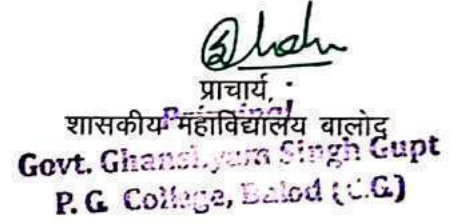 प्राचार्य,
Principal
शासकीय महाविद्यालय बालोद
Govt. Ghanshyam Singh Gupt
P. G. College, Balod (C.G.)